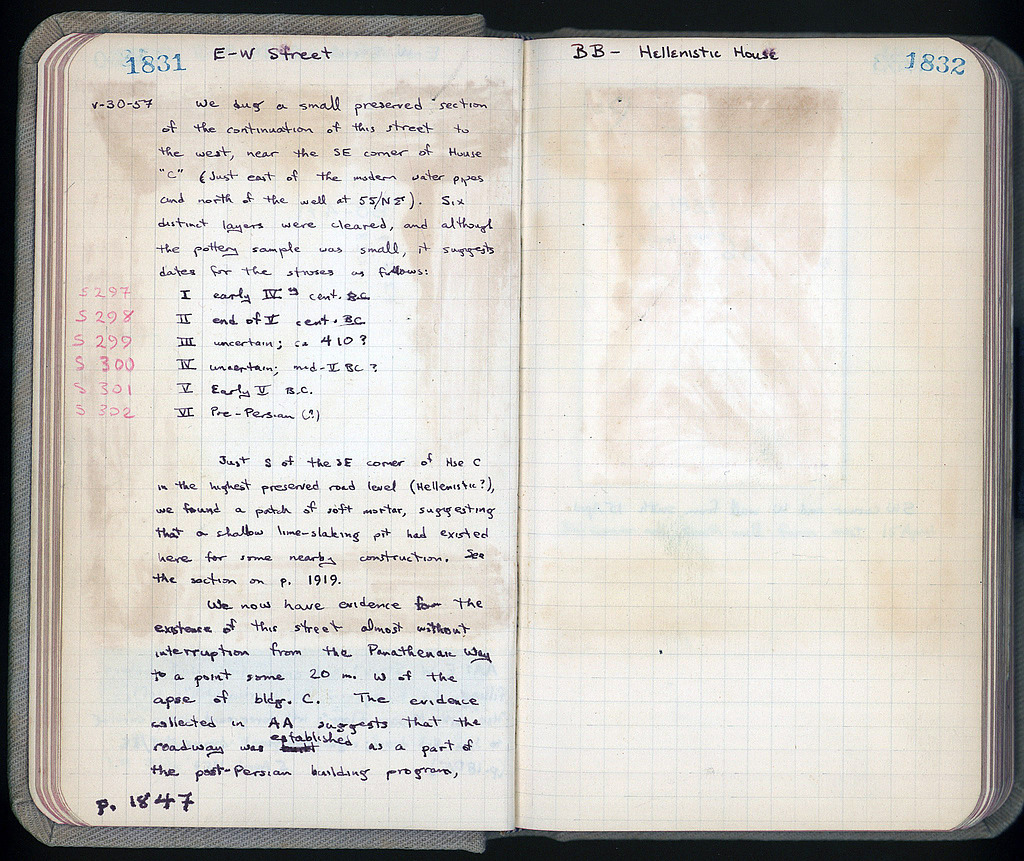 1831 E-W Street
V-30-57 We dug a small preserved section
of the continuation of this street to
the west, near the SE corner of House
"C" (Just east of the modern water pipes
and north of the well at 55/ΝΣ). Six
distinct layers were cleared, and although
the pottery sample was small, it suggests
dates for the strwses as follows:
S 297 I early IV cent. B.C.
S 298 II end of V cent. BC
S 299 III uncertain; ca 410?
S 300 IV uncertain; mid-V BC?
S 301 V Early V B.C.
S 302 VI Pre-Persian (?)
Just S of the SE corner of Hse C
in the highest preserved road level (Hellenistic?),
we found a patch of soft mortar, suggesting
that a shallow lime-slaking pit had existed
here for some nearby construction. See
the section on p. 1919.
We now have evidence for the
existence of this street almost without
interruption from the Panathenaic Way
to a point some 20 m. W of the
apse of bldg. C. The evidence
collected in AA suggests that the
established
roadway was built as a part of
the post-Persian building program,
p. 1847
BB - Hellenistic House 1832